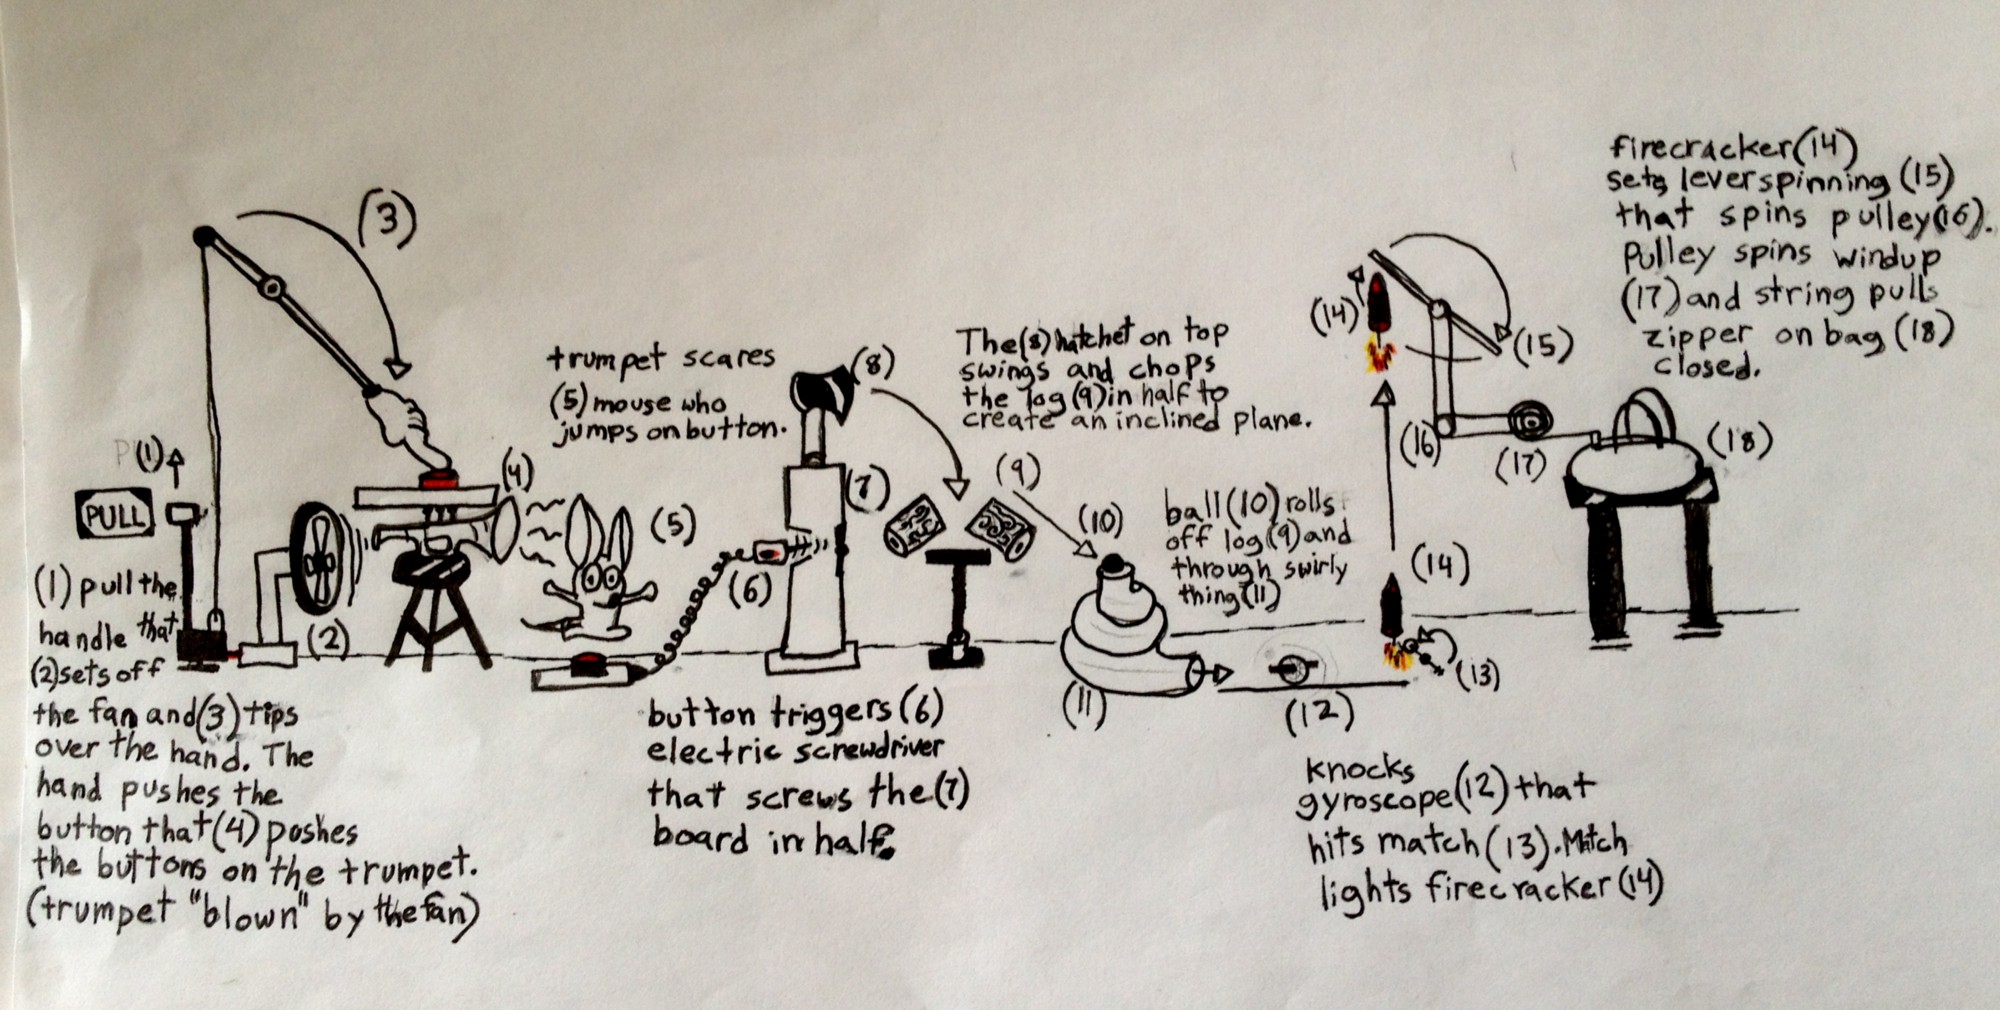 (3)
P(1)
PULL
(1) pull the
handle that
(2) sets off
the fan and (3) tips
over the hand. The
hand pushes the
button that (4) poshes
the buttons on the trumpet.
(trumpet "blown" by the fan)
(2)
(4)
trumpet scares
(5) mouse who
jumps on button.
(5)
(6)
(7)
(8)
button triggers (6)
electric screwdriver
that screws the (7)
board in half.
The (8) hatchet on top
swings and chops
the log (9) in half to
create an inclined plane.
(9)
(10)
ball (10) rolls
off log (9) and
through swirly
thing (11)
(11)
(12)
(13)
(14)
knocks
gyroscope (12) that
hits match (13). Match
lights firecracker (14)
(14)
(15)
(16)
(17)
(18)
firecracker (14)
sets lever spinning (15)
that spins pulley (16).
Pulley spins windup
(17) and string pulls
zipper on bag (18)
closed.